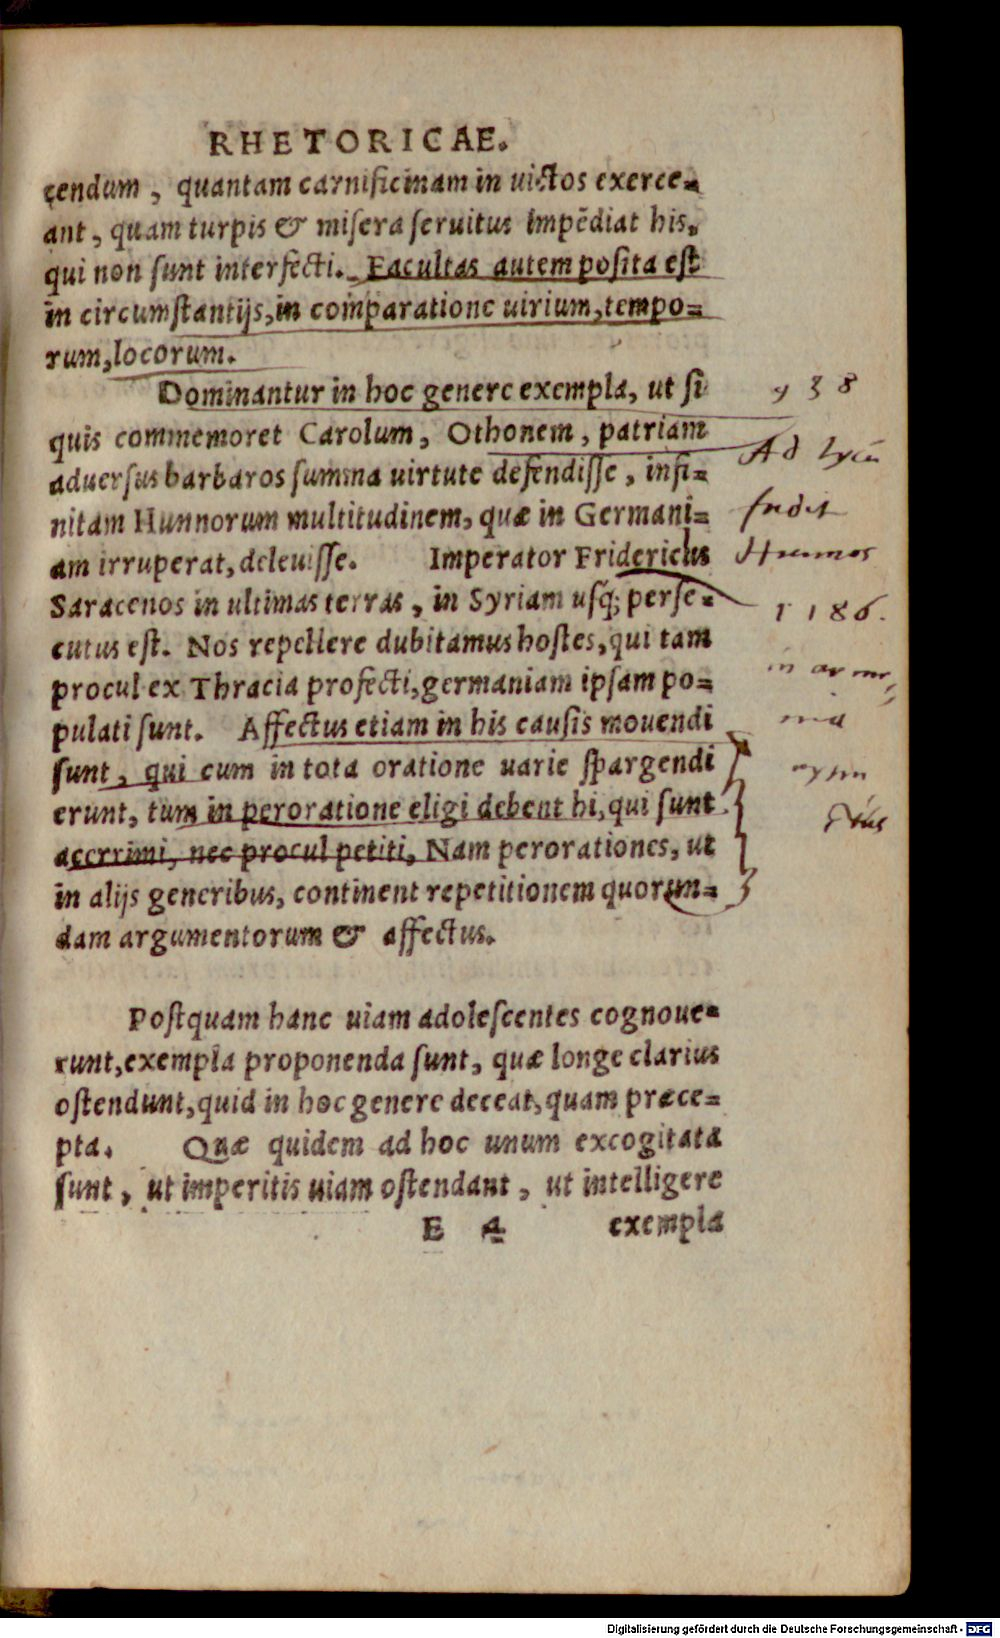 RHETORICAE.
cendum, quantam carnificinam in uictos exerce-
ant, quam turpis & misera seruitus impẽdiat his,
qui non sunt interfecti. Facultas autem posita est
in circumstantijs, in comparatione uirium, tempo-
rum, locorum.
Dominantur in hoc genere exempla, ut si
quis commemoret Carolum, Othonem, patriam
aduersus barbaros summa uirtute defendisse, infi-
nitam Hunnorum multitudinem, quæ in Germani-
am irruperat, deleuisse. Imperator Fridericus
Saracenos in ultimas terras, in Syriam usq; perse-
cutus est. Nos repellere dubitamus hostes, qui tam
procul ex Thracia profecti, germaniam ipsam po-
pulati sunt. Affectus etiam in his causis mouendi
sunt, qui cum in tota oratione uarie spargendi
erunt, tum in peroratione eligi debent hi, qui sunt
acerrimi, nec procul petiti, Nam perorationes, ut
in alijs generibus, continent repetitionem quorun-
dam argumentorum & affectus.
Postquam hanc uiam adolescentes cognoue-
runt, exempla proponenda sunt, quæ longe clarius
ostendunt, quid in hoc genere deceat, quam præce-
pta. Quæ quidem ad hoc unum excogitata
sunt, ut imperitis uiam ostendant, ut intelligere
E 4 exempla
938
Ad
fudit
Hunnos
1186.
in arme
nia
Digitalisierung gefördert durch die Deutsche Forschungsgemeinschaft - DFG